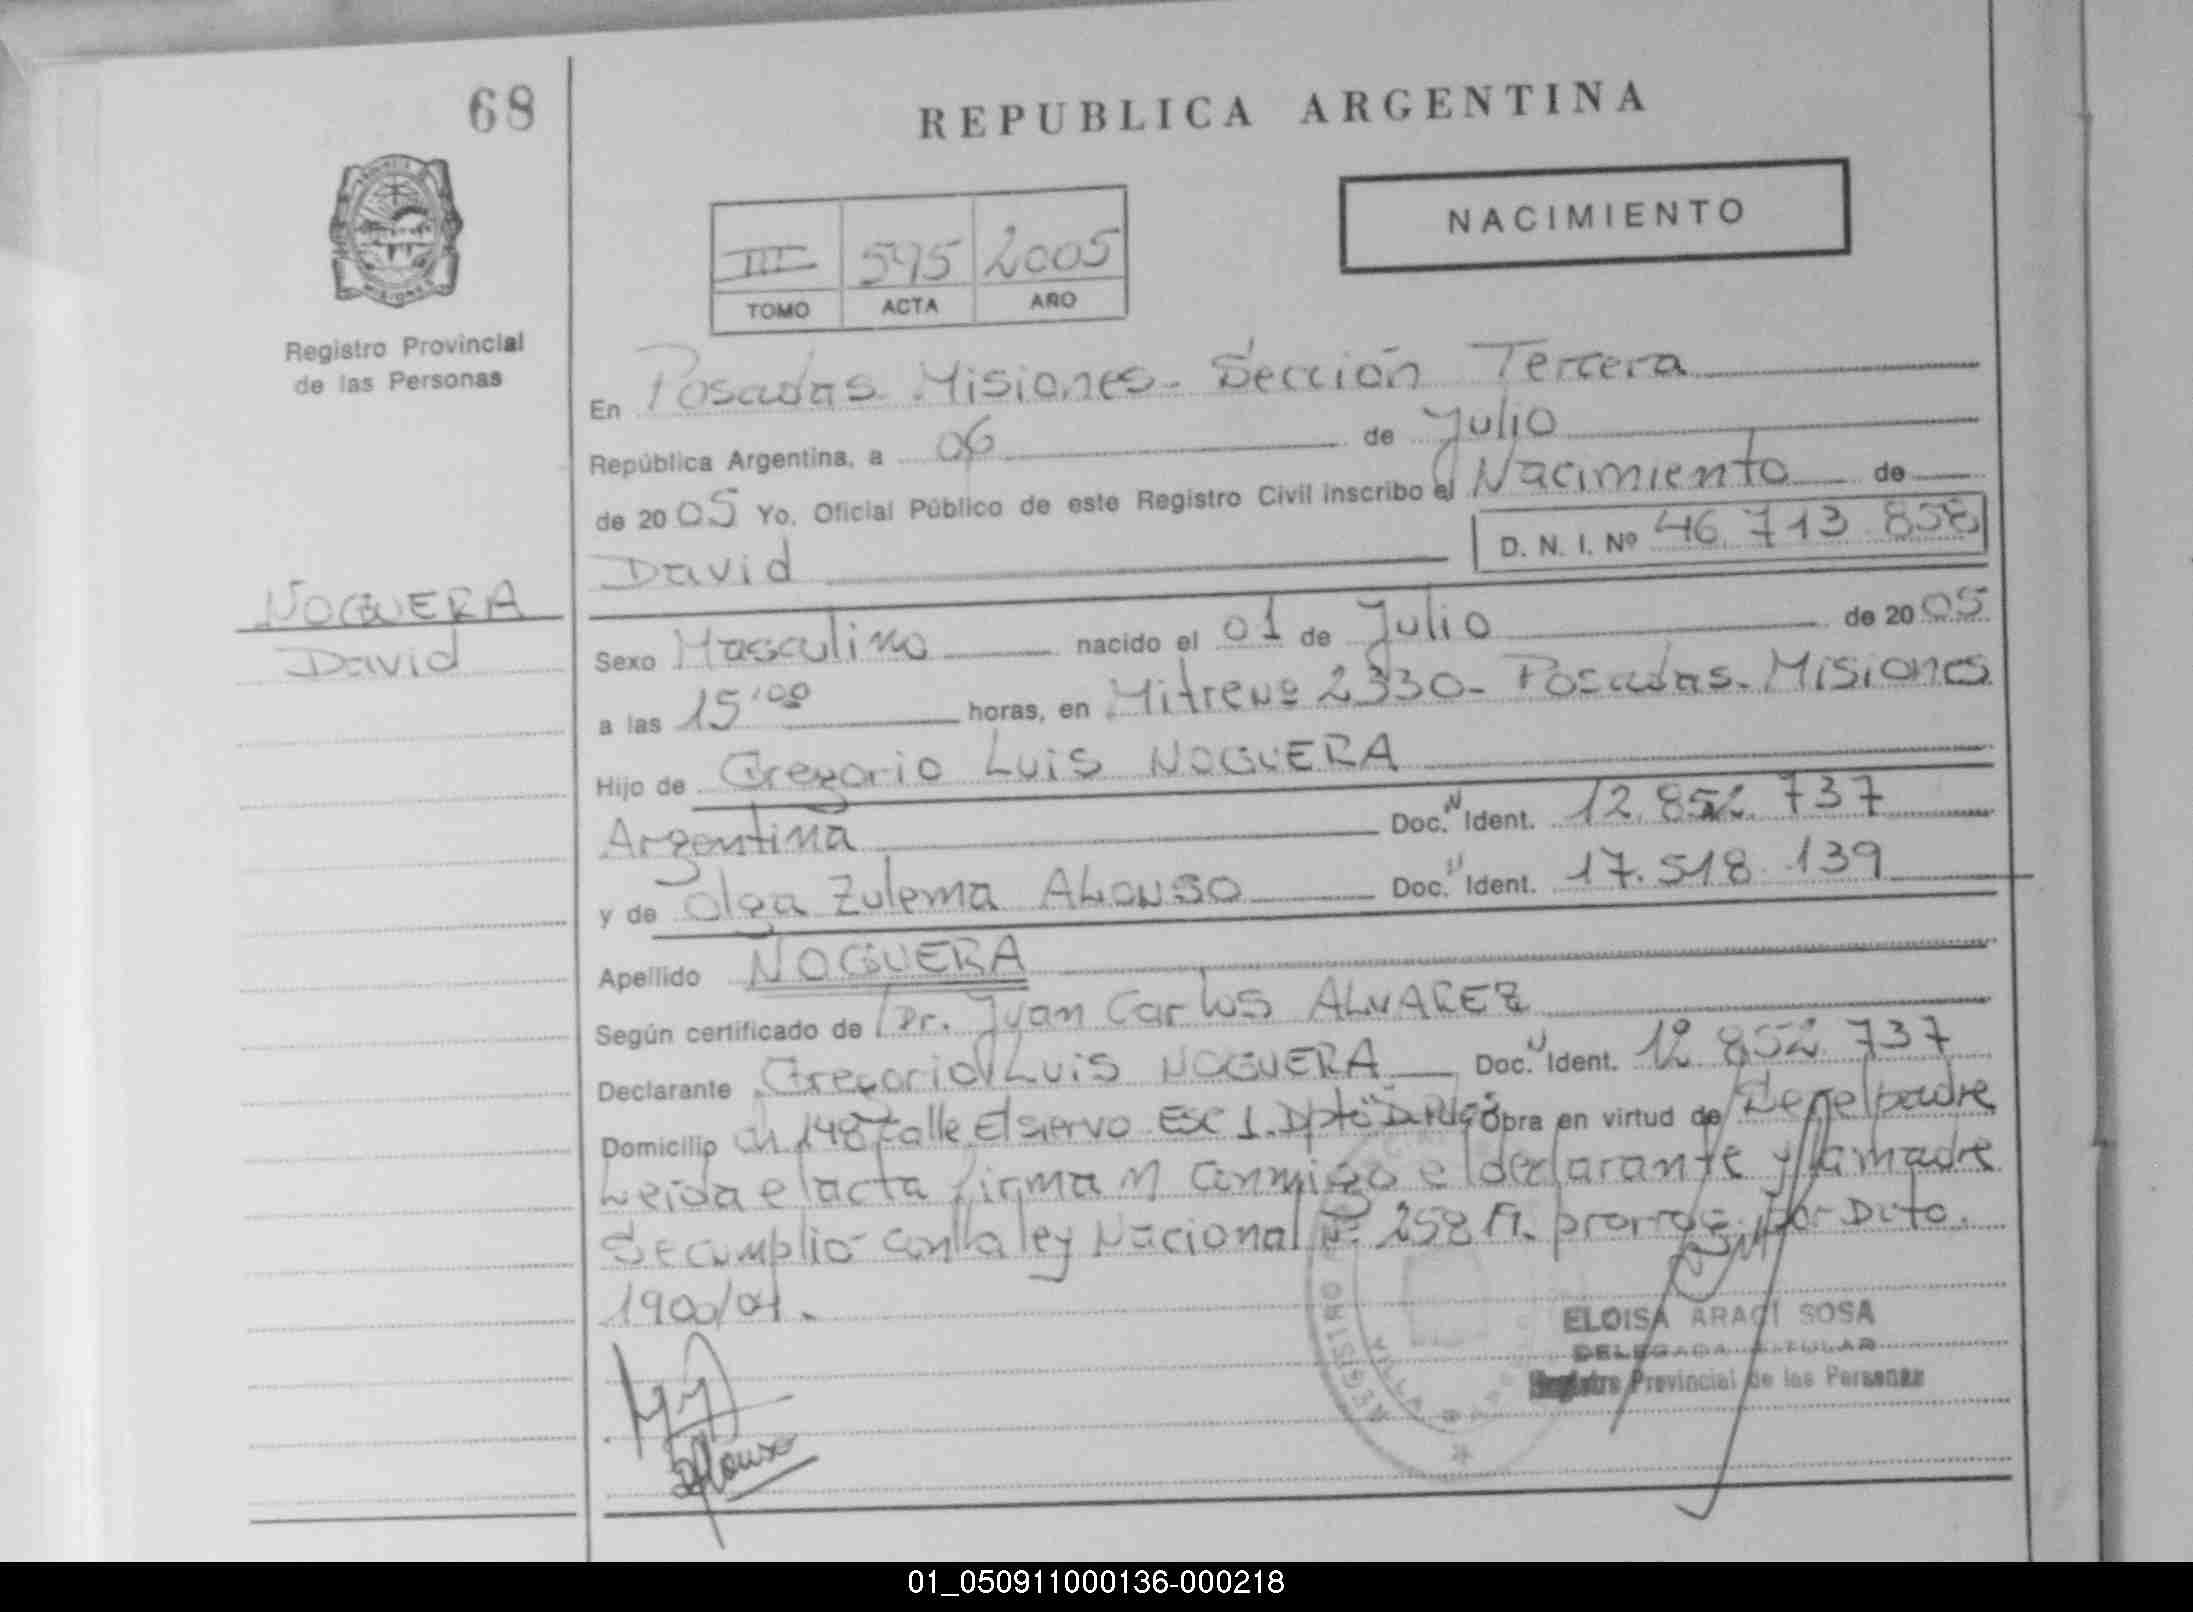 68
REPUBLICA ARGENTINA
NACIMIENTO
III 595 2005
TOMO ACTA AÑO
Registro Provincial
de las Personas
En Posadas Misiones - Sección Tercera
República Argentina, a 06 de Julio
de 2005 Yo, Oficial Público de este Registro Civil inscribo el Nacimiento de
David D. N. I. Nº 46.713.858
NOGUERA
David
Sexo Masculino nacido el 01 de Julio de 2005
a las 15'00 horas, en Mitre Nº 2330 - Posadas - Misiones
Hijo de Gregorio Luis NOGUERA
Argentina Doc. N Ident. 12.852.737
y de Olga Zulema ALONSO Doc. N Ident. 17.518.139
Apellido NOGUERA
Según certificado de Dr. Juan Carlos ALVAREZ
Declarante Gregorio Luis NOGUERA Doc. N Ident. 12.852.737
Domicilio Ch 148 calle El siervo Esc 1. Dpto Obra en virtud de Ser el padre
Leida el acta firman conmigo el declarante y la madre
Se cumplio con la ley Nacional Nº 258 prorrog. por Dcto.
1900/04.
Alonso
REGISTRO
VILLA
ELOISA ARACI SOSA
DELEGADA TITULAR
Registro Provincial de las Personas
01_050911000136-000218